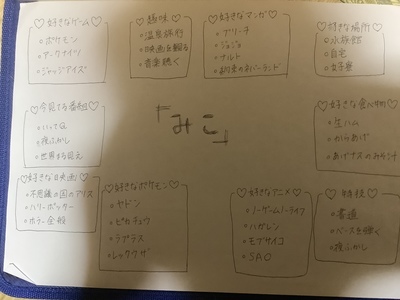 ♡好きなゲーム♡
○ポケモン
○アークナイツ
○ジャッジアイズ
♡趣味♡
○温泉旅行
○映画を観る
○音楽聴く
♡好きなマンガ♡
○ブリーチ
○ジョジョ
○ナルト
○約束のネバーランド
♡好きな場所♡
○水族館
○自宅
♡今見てる番組♡
○いってQ
○夜ふかし
○世界まる見え
『みこ』
♡好きな食べ物♡
○生ハム
○からあげ
○あげナスのみそ汁
♡好きな映画♡
○不思議の国のアリス
○ハリーポッター
○ホラー全般
♡好きなポケモン♡
○ヤドン
○ピカチュウ
○ラプラス
○レックウザ
♡好きなアニメ♡
○ノーゲームノーライフ
○ハガレン
○モブサイコ
○SAO
♡特技♡
○書道
○ベースを弾く
○夜ふかし